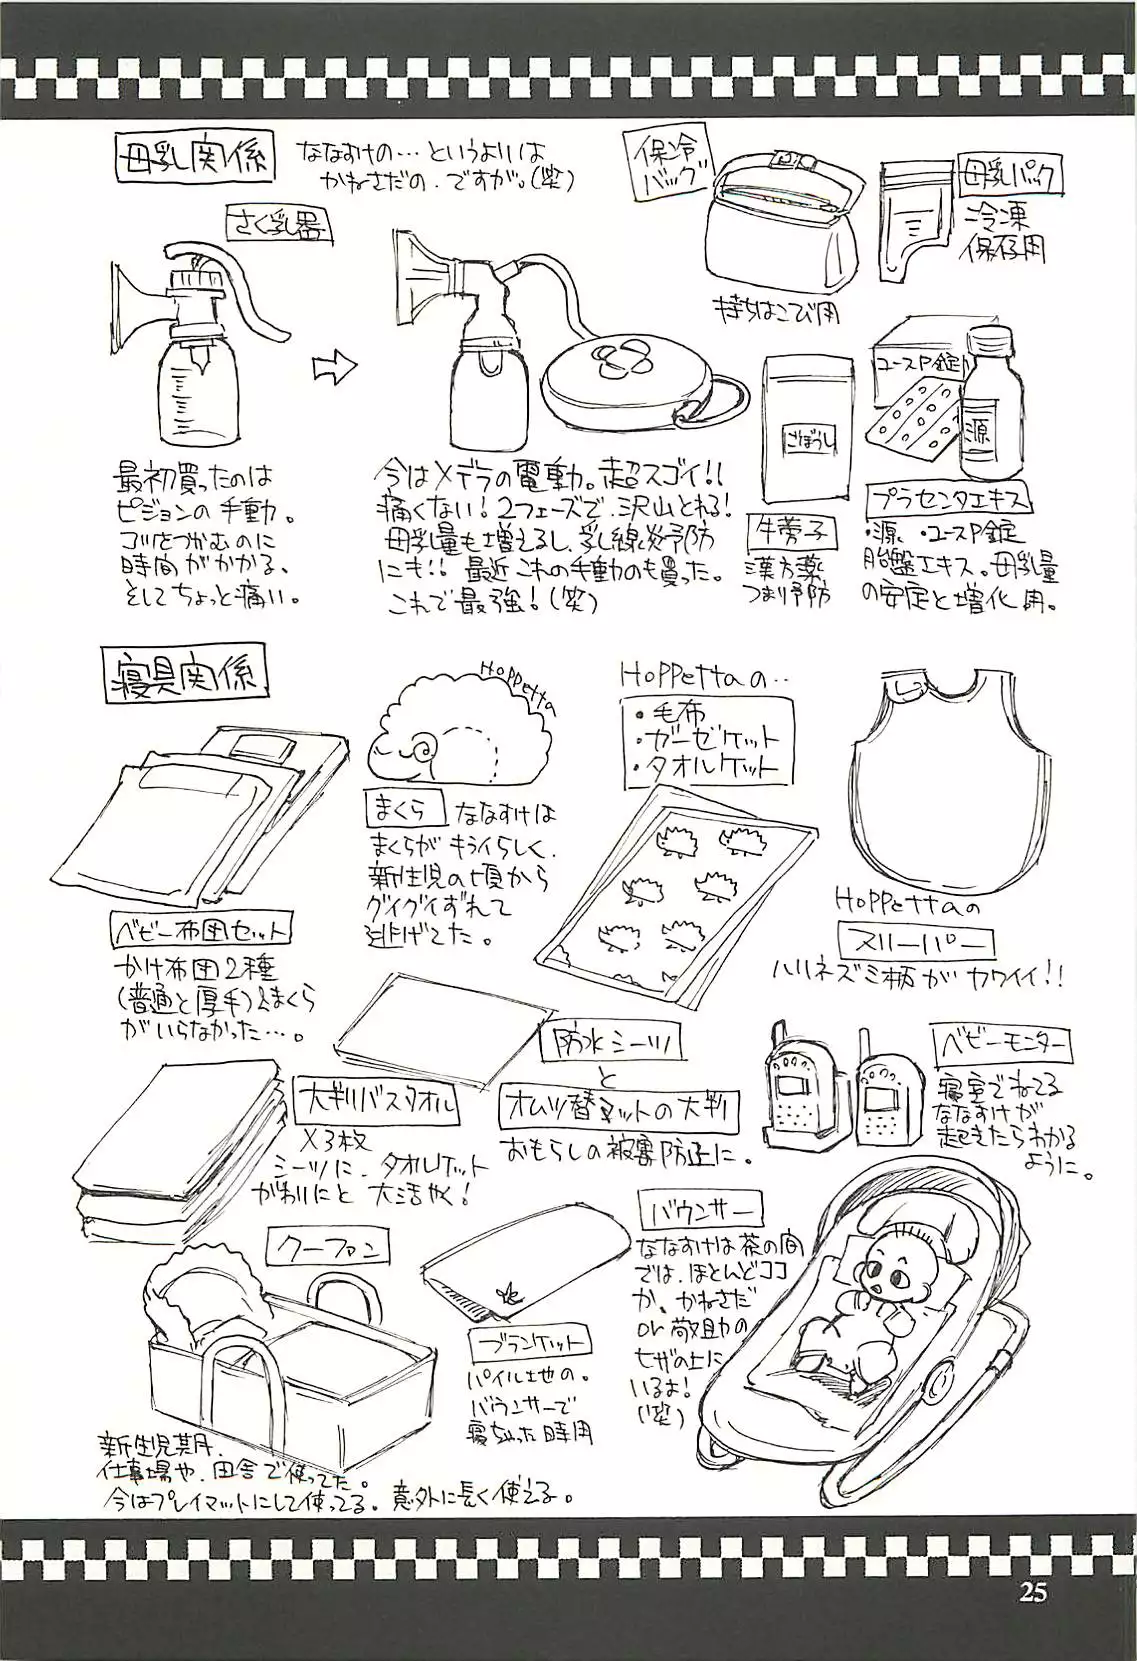 母乳関係
ななすけの…というよりは
かねさだの.ですが。(笑)
さく乳器
最初買ったのは
ピジョンの手動。
コツをつかむのに
時間がかかる、
そしてちょっと痛い。
今はメデラの電動。超スゴイ!!
痛くない!2フェーズで、沢山とれる!
母乳量も増えるし、乳線炎予防
にも!!最近これの手動のも買った。
これで最強!(笑)
保冷
バッグ
持ちはこび用
母乳パック
冷凍
保存用
ごぼうし
牛蒡子
漢方薬
つまり予防
ユースP錠
源
プラセンタエキス
・源、・ユースP錠
胎盤エキス。母乳量
の安定と増化用。
寝具関係
ベビー布団セット
かけ布団2種
(普通と厚手)&まくら
がいらなかった…。
Hoppetta
まくら
ななすけは
まくらがキライらしく、
新生児の頃から
グイグイずれて
逃げてた。
Hoppettaの‥
・毛布
・ガーゼケット
・タオルケット
Hoppettaの
スリーパー
ハリネズミ柄がカワイイ!!
防水シーツ
と
オムツ替マットの大判
おもらしの被害防止に。
大判バスタオル
×3枚
シーツに、タオルケット
がわりにと大活やく!
ベビーモニター
寝室でねてる
ななすけが
起えたらわかる
ように。
クーファン
新生児期、
仕事場や、田舎で使ってた。
今はプレイマットにして使ってる。意外に長く使える。
ブランケット
パイル地の。
バウンサーで
寝ちゃった時用
バウンサー
ななすけは茶の間
では、ほとんどココ
か、かねさだ
or敬助の
ヒザの上に
いるよ!
(笑)
25